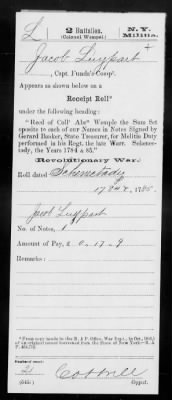 L
2 Battalion.
(Colonel Wempel.)
N. Y.
Militia.
Jacob Luypart
, Capt. Funda's Comp'y.
Appears as shown below on a
Receipt Roll*
under the following heading:
"Recd of Coll' Abm Wemple the Sum Set
oposite to each of our Names in Notes Signed by
Gerard Banker, State Treasurer, for Militia Duty
performed in his Regt. the late Warr. Schenec-
tady, the Years 1784 & 85."
Revolutionary War.
Roll dated Schenectady
1784 & 1785.
Jacob Luypart
No. of Notes, 1
Amount of Pay, £ 0 . 17 . 9
Remarks:
Number of record:
21
Cottrell
Copyist.